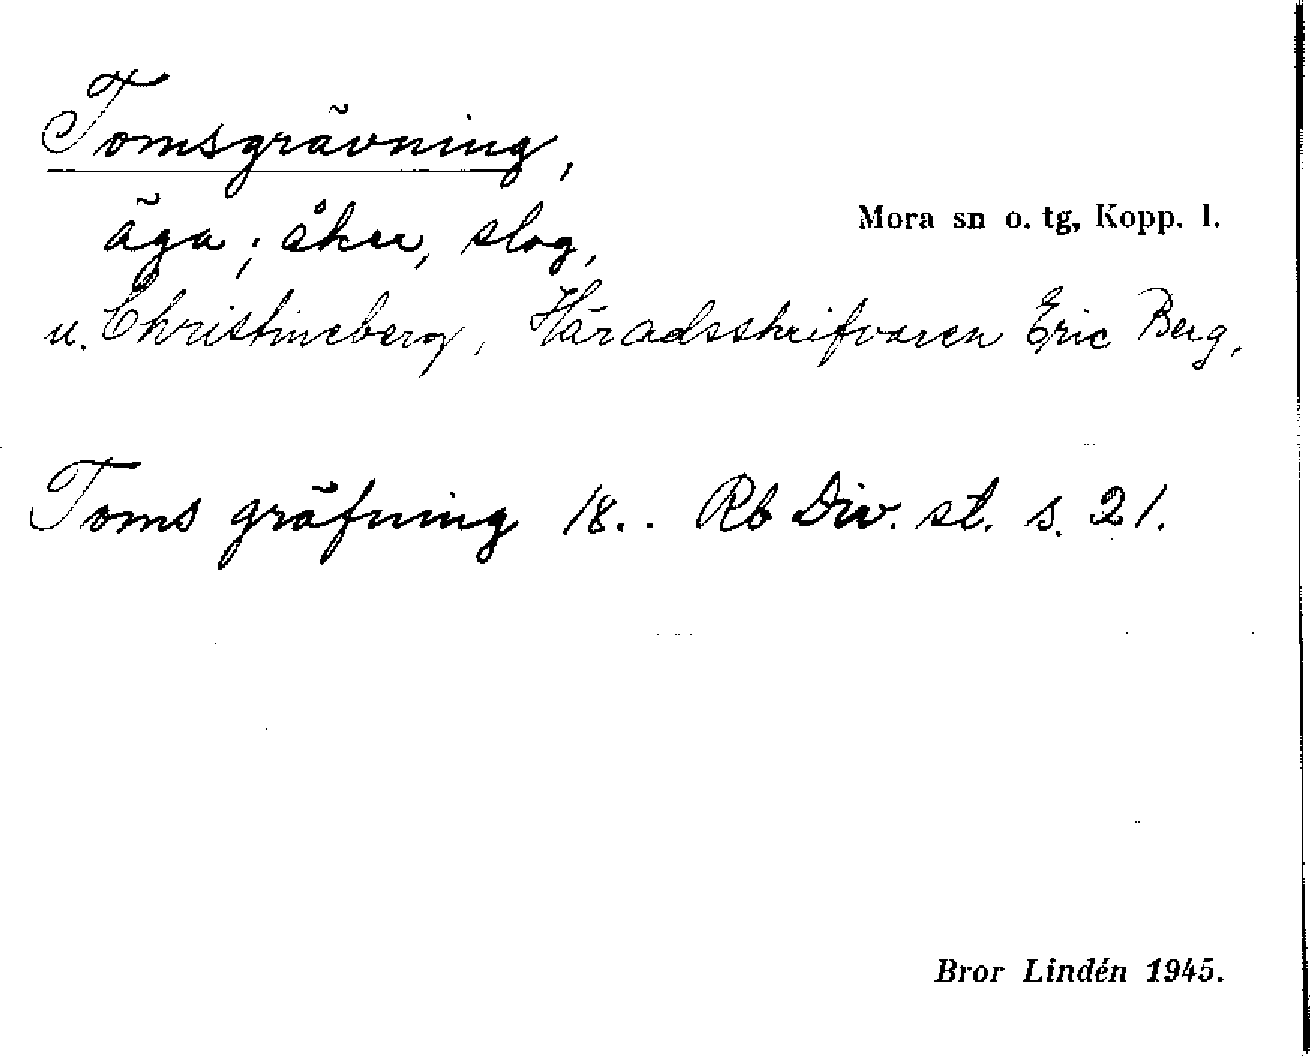 Tomsgrävning,
äga; åker, slog,
Mora sn o. tg, Kopp. l.
u. Christineberg, Häradsskrifvaren Eric Berg,
Toms gräfning 18.. Rb Div. st. s. 21.
Bror Lindén 1945.